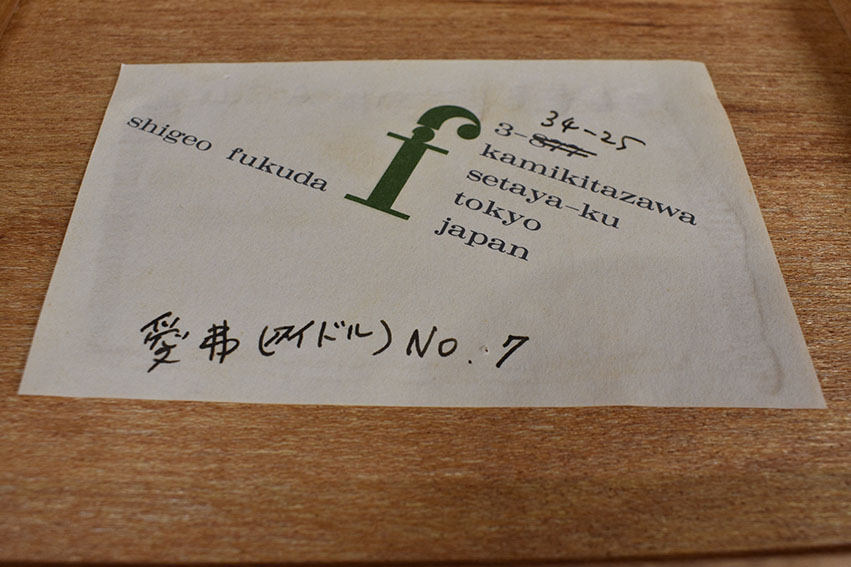 shigeo fukuda
f
3-34-25
kamikitazawa
setaya-ku
tokyo
japan
愛弗(アイドル) No. 7